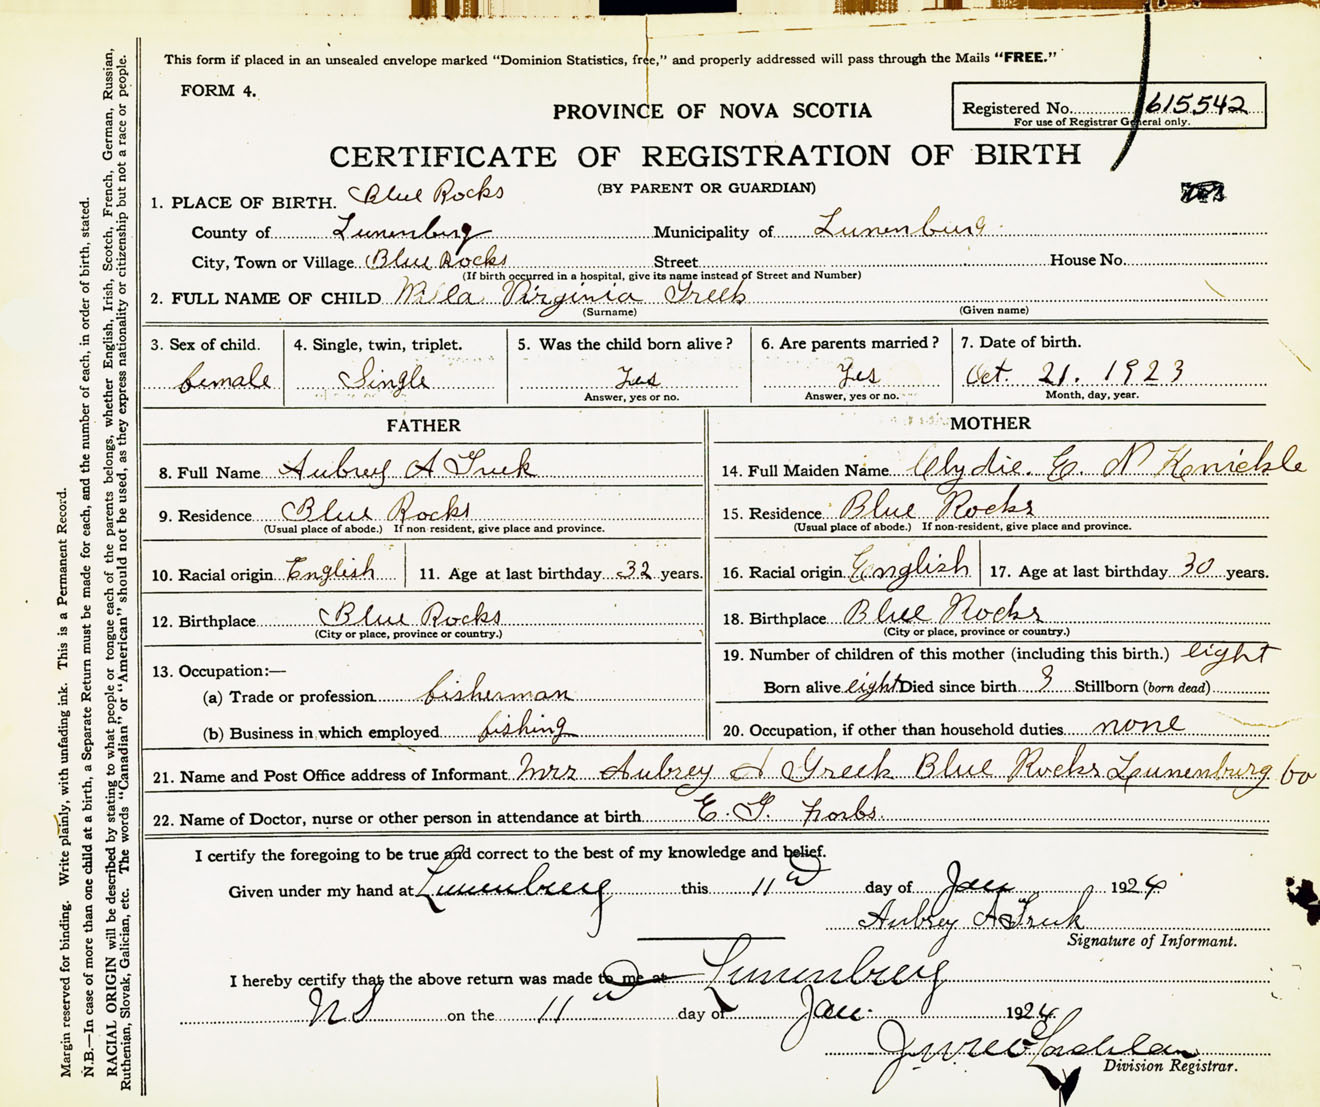 This form if placed in an unsealed envelope marked "Dominion Statistics, free," and properly addressed will pass through the Mails "FREE."
FORM 4.
PROVINCE OF NOVA SCOTIA
Registered No. 615542
For use of Registrar General only.
CERTIFICATE OF REGISTRATION OF BIRTH
(BY PARENT OR GUARDIAN)
1. PLACE OF BIRTH. Blue Rocks
County of Lunenburg Municipality of Lunenburg
City, Town or Village Blue Rocks Street House No.
(If birth occurred in a hospital, give its name instead of Street and Number)
2. FULL NAME OF CHILD Willa Virginia Greek
(Surname) (Given name)
3. Sex of child. 4. Single, twin, triplet. 5. Was the child born alive? 6. Are parents married? 7. Date of birth.
female Single Yes Yes Oct. 21. 1923
Answer, yes or no. Answer, yes or no. Month, day, year.
FATHER MOTHER
8. Full Name Aubrey A Greek 14. Full Maiden Name Clydie. E. N Knickle
9. Residence Blue Rocks 15. Residence Blue Rocks
(Usual place of abode.) If non-resident, give place and province. (Usual place of abode.) If non-resident, give place and province.
10. Racial origin English 11. Age at last birthday 32 years. 16. Racial origin English 17. Age at last birthday 30 years.
12. Birthplace Blue Rocks 18. Birthplace Blue Rocks
(City or place, province or country.) (City or place, province or country.)
13. Occupation:— 19. Number of children of this mother (including this birth.) eight
(a) Trade or profession fisherman Born alive eight Died since birth Stillborn (born dead)
(b) Business in which employed fishing 20. Occupation, if other than household duties none
21. Name and Post Office address of Informant Mrs Aubrey A Greek Blue Rocks Lunenburg Co
22. Name of Doctor, nurse or other person in attendance at birth E. G. Forbs.
I certify the foregoing to be true and correct to the best of my knowledge and belief.
Given under my hand at Lunenburg this 11th day of Jan 1924
Aubrey A Greek
Signature of Informant.
I hereby certify that the above return was made to me at Lunenburg
NS on the 11th day of Jan. 1924
Division Registrar.
Margin reserved for binding. Write plainly, with unfading ink. This is a Permanent Record.
N.B.—In case of more than one child at a birth, a Separate Return must be made for each, and the number of each, in order of birth, stated.
RACIAL ORIGIN will be described by stating to what people or tongue each of the parents belongs, whether English, Irish, Scotch, French, German, Russian,
Ruthenian, Slovak, Galician, etc. The words "Canadian" or "American" should not be used, as they express nationality or citizenship but not a race or people.